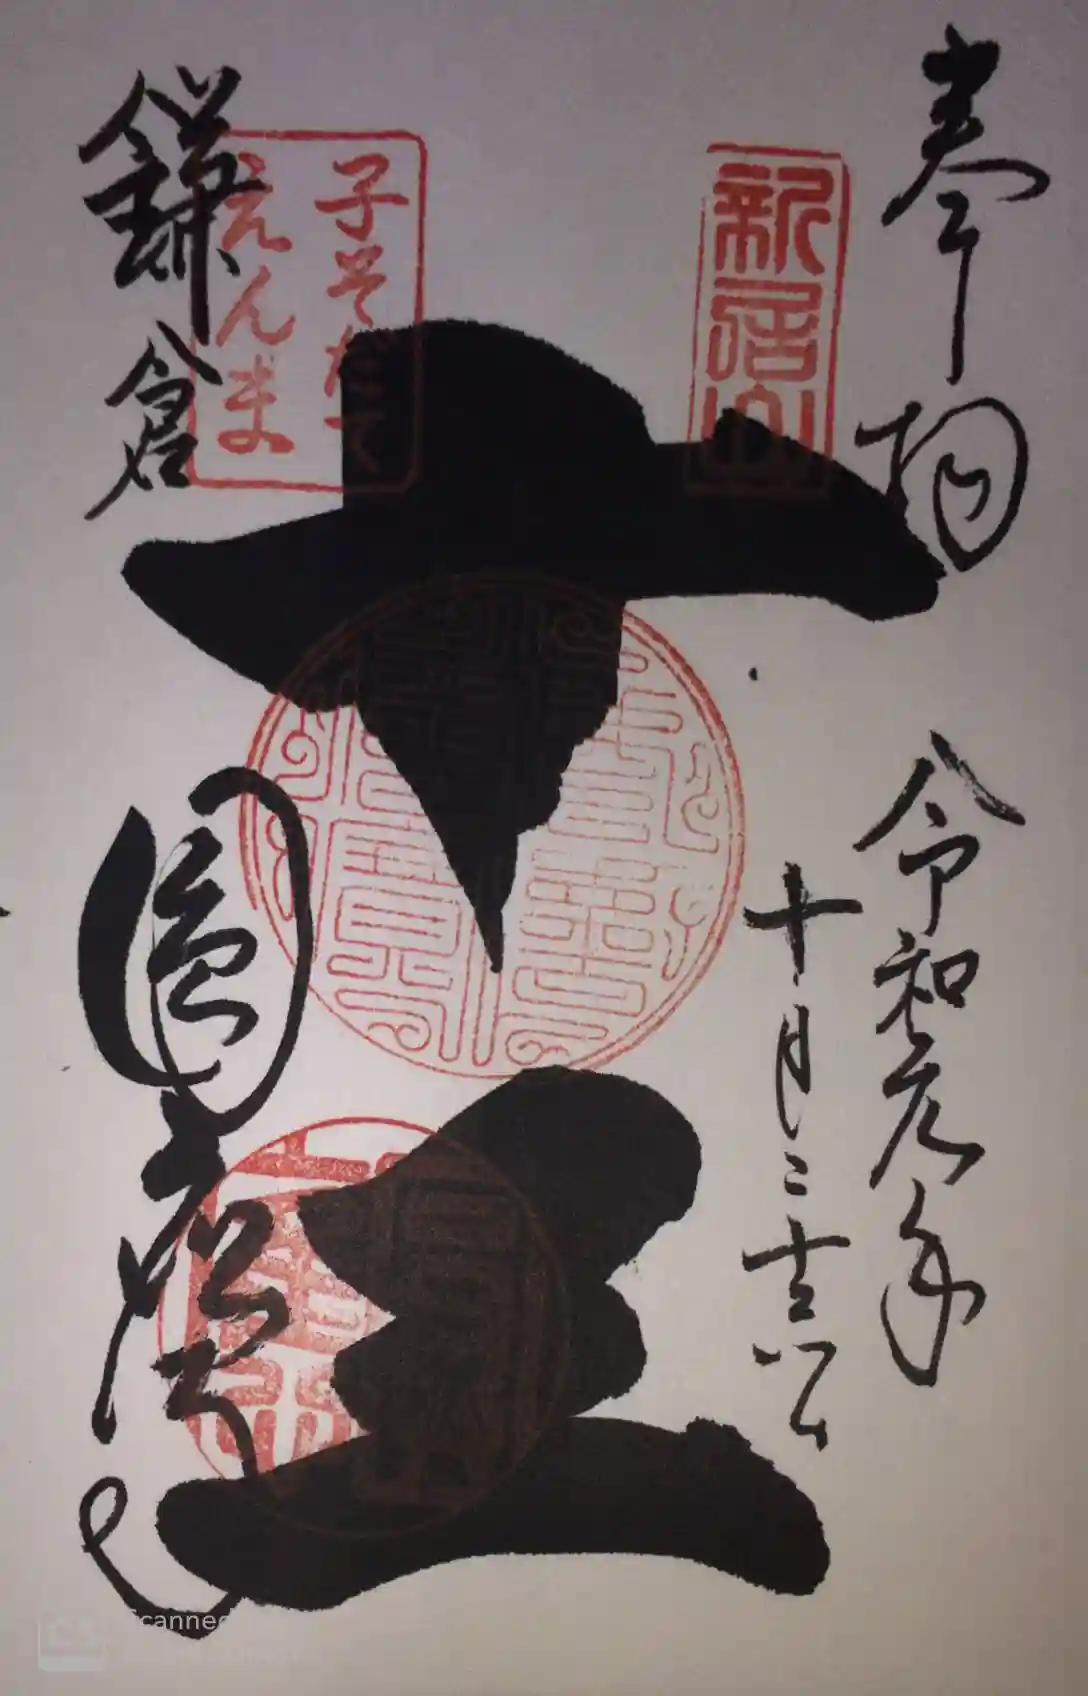 奉拝
令和元年
十月二十六日
新居山
十王
子そだて
えんま
鎌倉
圓應寺
Scanned